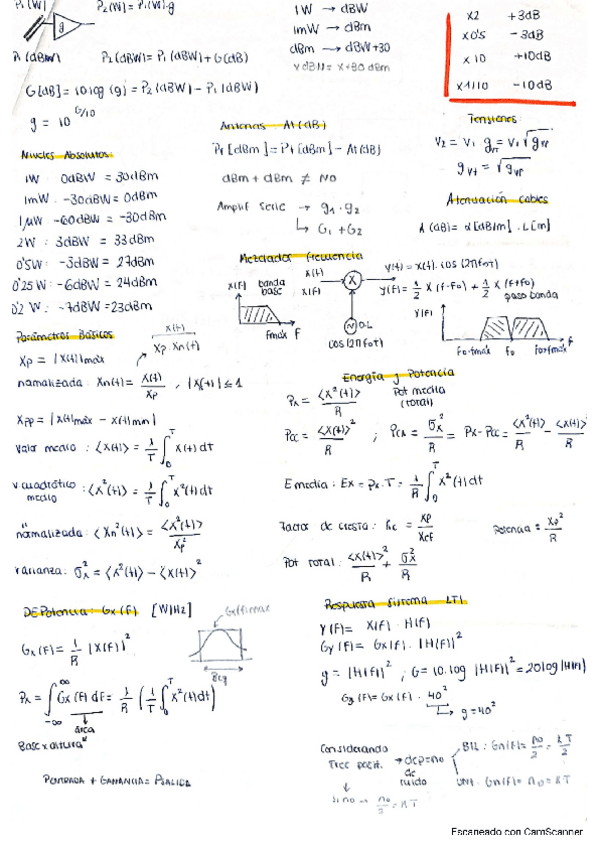 P₁(W) P₂(W) = P₁(W)·g
g
P₁(dBW) P₂(dBW) = P₁(dBW) + G(dB)
G[dB] = 10 log(g) = P₂(dBW) − P₁(dBW)
g = 10^(G/10)
1W → dBW
1mW → dBm
dBm → dBW+30
x2 +3dB
x0'5 −3dB
x10 +10dB
x1/10 −10dB
Niveles Absolutos:
1W 0dBW = 30dBm
1mW. −30dBW = 0dBm
1µW −60dBW = −30dBm
2W : 3dBW = 33dBm
0'5W : −3dBW = 27dBm
0'25W : −6dBW = 24dBm
0'2 W : −7dBW = 23dBm
Antenas : At(dB)
Pr[dBm] = Pt[dBm] − At(dB)
dBm + dBm ≠ NO
Amplif serie → g₁·g₂
↳ G₁+G₂
Tensiones:
Atenuación cables
A(dB) = α[dB/m] . L[m]
Mezclador frecuencia
X(F) banda base
fmáx F
x(t)
X(F)
X
O.L
cos(2πfot)
y(t) = x(t). cos(2πfot)
Y(F) = 1/2 X(F−Fo) + 1/2 X(F+Fo)
paso banda
Y(F)
Fo−fmáx fo Fo+fmáx F
Parámetros Básicos
Xp = |x(t)|máx
x(t)
Xp.Xn(t)
normalizada: Xn(t) = x(t)/Xp , |x(t)| ≤ 1
Xpp = |x(t)máx − x(t)min|
Valor medio : <x(t)> = 1/T ∫₀ᵀ x(t)dt
v cuadrático medio : <x²(t)> = 1/T ∫₀ᵀ x²(t)dt
" normalizada: <Xn²(t)> = <x²(t)>/Xp²
varianza: σx² = <x²(t)> − <x(t)>²
Energía y Potencia
Px = <x²(t)>/R Pot media (total)
Pcc = <x(t)>²/R ; Pca = σx²/R = Px−Pcc = <x²(t)>/R − <x(t)>/R
E media: Ex = Px.T = 1/R ∫₀ᵀ x²(t)dt
Factor de cresta: Fc = Xp/Xef
Potencia = Xp²/R
Pot total: <x(t)>²/R + σx²/R
DEPotencia: Gx(F) [W/Hz]
Gx(F) = 1/R |X(F)|²
Beq
Px = ∫₋∞^∞ Gx(F) dF = 1/R (1/T ∫₀ᵀ x²(t)dt)
área
Base x altura"
PENTRADA + GANANCIA = PSALIDA
Respuesta Sistema LTI
Y(F) = X(F) . H(F)
Gy(F) = Gx(F) . |H(F)|²
g = |H(F)|² ; G = 10.log |H(F)|² = 20log|H(F)|
Gy(F) = Gx(F) . 40²
↳ g = 40²
Considerando
Frec posit. → dep = no de ruido
BIL : Gn(F) = no/2 = kT/2
UNI. Gn(F) = no = kT
↓
si no → no/2 = kT
Escaneado con CamScanner